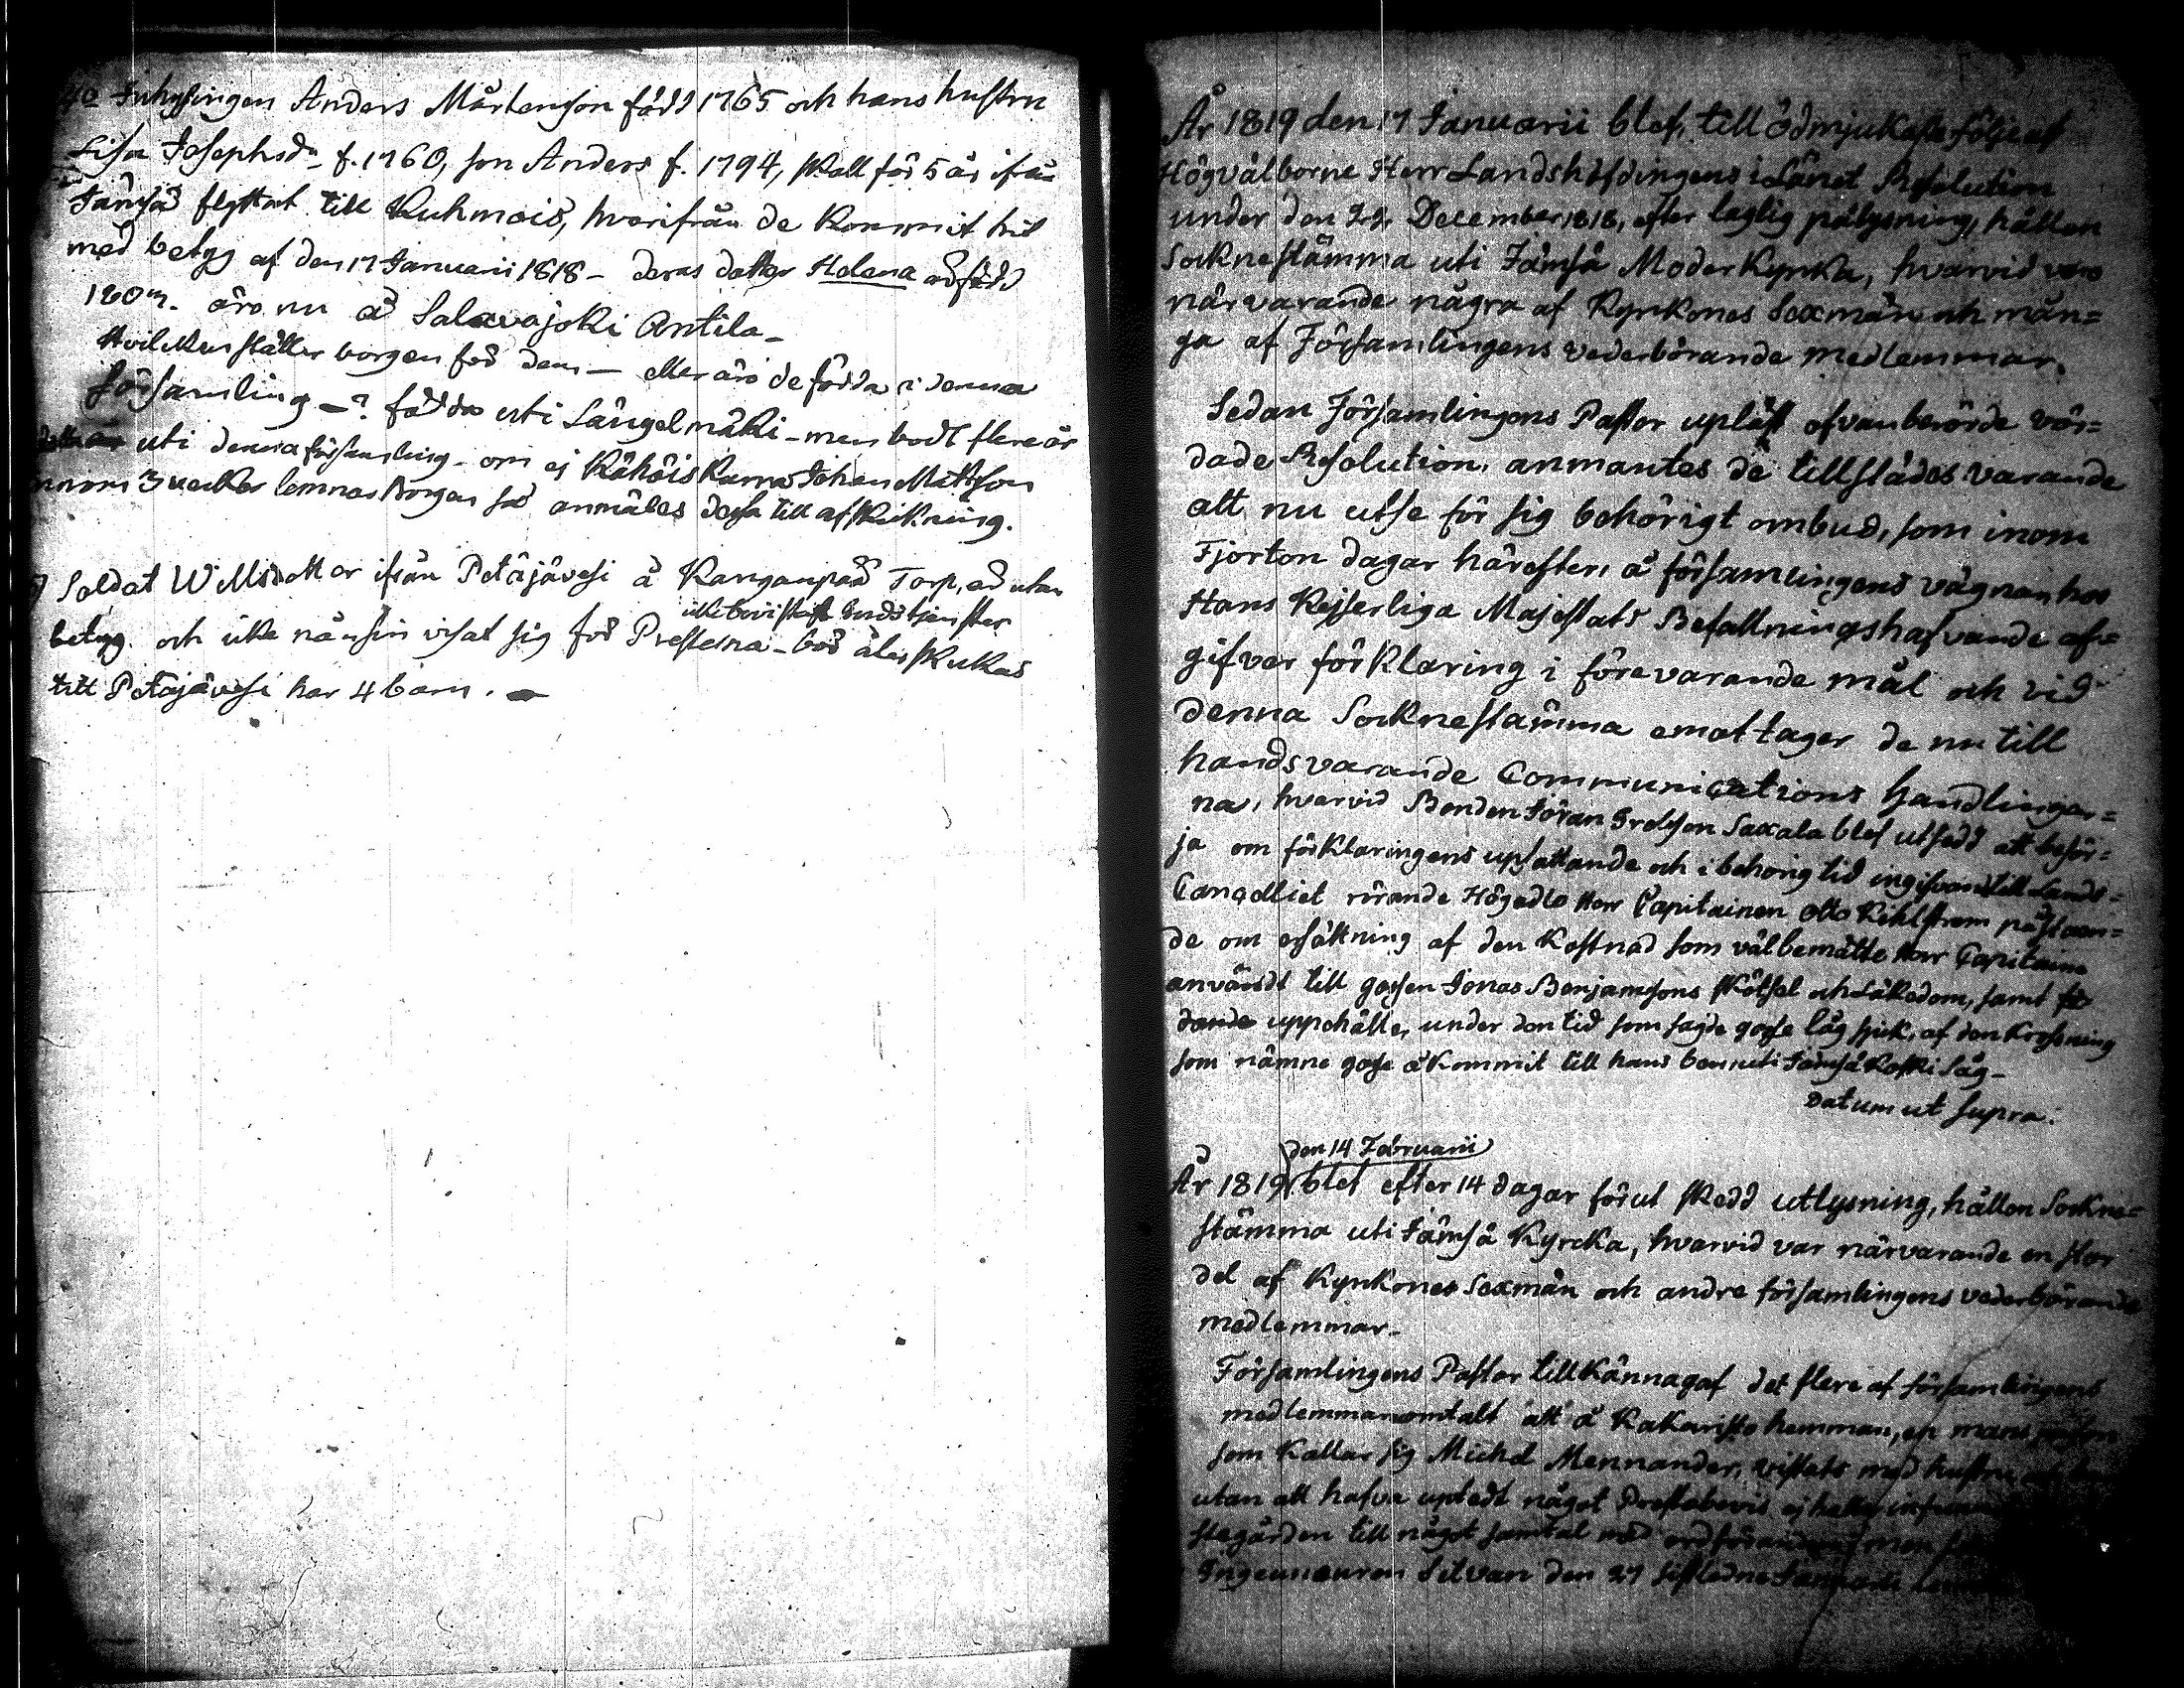 4o Inhysingen Anders Mårtenson född 1765 och hans hustru
Lisa Josephsdr f. 1760, son Anders f. 1794, skall för 5 år ifrån
Jämsä flyttat till Kuhmois, hvarifrån de kommit hit
med betyg af den 17 Januarii 1818 - deras dotter Helena är född
äro nu å Salavajoki Antila -
Hvilcken ställer borgen för dem - eller äro de födda i denna
församling -? födda uti Längelmäki - men bodt flere år
uti denna församling - om ej Kähöis Johan Mattson
innom 3 veckor lemnar Borgen så anmäles dessa till afskickning.
Soldat ifrån Petäjävesi å Kanganpää Torp, är utan
icke bevistat Gudstjenster
betyg och icke nånsin visat sig för Presterna - bör åter skickas
till Petäjävesi har 4 barn. -
År 1819 den 17 Januarii blef, till ödmjukaste följe af
Högvälborne Herr Landshöfdingens i Länet Resolution
under den December 1818, efter laglig pålysning, hållen
Socknestämma uti Jämsä Moderkyrka, hvarvid voro
närvarande några af Kyrkones Sexmän och mån=
ga af Församlingens vederbörande medlemmar.
Sedan Församlingens Pastor upläst ofvanberörde vör=
dade Resolution, anmantes de tillstädes varande
att nu utse för sig behörigt ombud, som inom
Fjorton dagar härefter, å församlingens vägnar hos
Hans Kejserliga Majestäts Befallningshafvande af=
gifver förklaring i förevarande mål och vid
denna Socknestämma emottager de nu till
hands varande Communications handlingar=
na, hvarvid Bonden Göran Ersson Saxala blef utsedd att besör=
ja om förklaringens upsattande och i behörig tid ingifvande till Lands=
Cancelliet rörande Högädle Herr Capitainen Otto Kihlstrem påståen=
de om ersättning af den Kostnad som välbemälte Herr Capitaine
användt till gossen Jonas Benjamsons skötsel och Läkedom, samt
uppehälle, under den tid som sagde gosse låg sjuk, af den Krossning
som nämne gosse åkommit till hans ben uti Jämsä Koski såg -
Datum ut Supra.
den 14 Februarii
År 1819 blef efter 14 dagar förut skedd utlysning, hållen Sockne=
stämma uti Jämsä Kyrcka, hvarvid var närvarande en stor
del af Kyrkones Sexmän och andre församlingens vederbörande
medlemmar -
Församlingens Pastor tillkännagaf det flere af församlingens
medlemmar omtalt att å Kakaristo hemman, en mans person
som kallar sig Michel Mennander, vistats med hustru
utan att hafva uptedt något Prestabevis ej heller
stegården till något samtal med ordföranden men
Ingenieuren Silvan den 27 sistledne Januarii